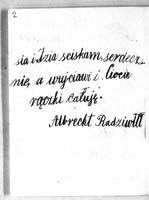 2
sia i Izia sciskam serdecz
nie, a wujciawi i Ciocia
rączki całuję.
Albrecht Radziwiłł